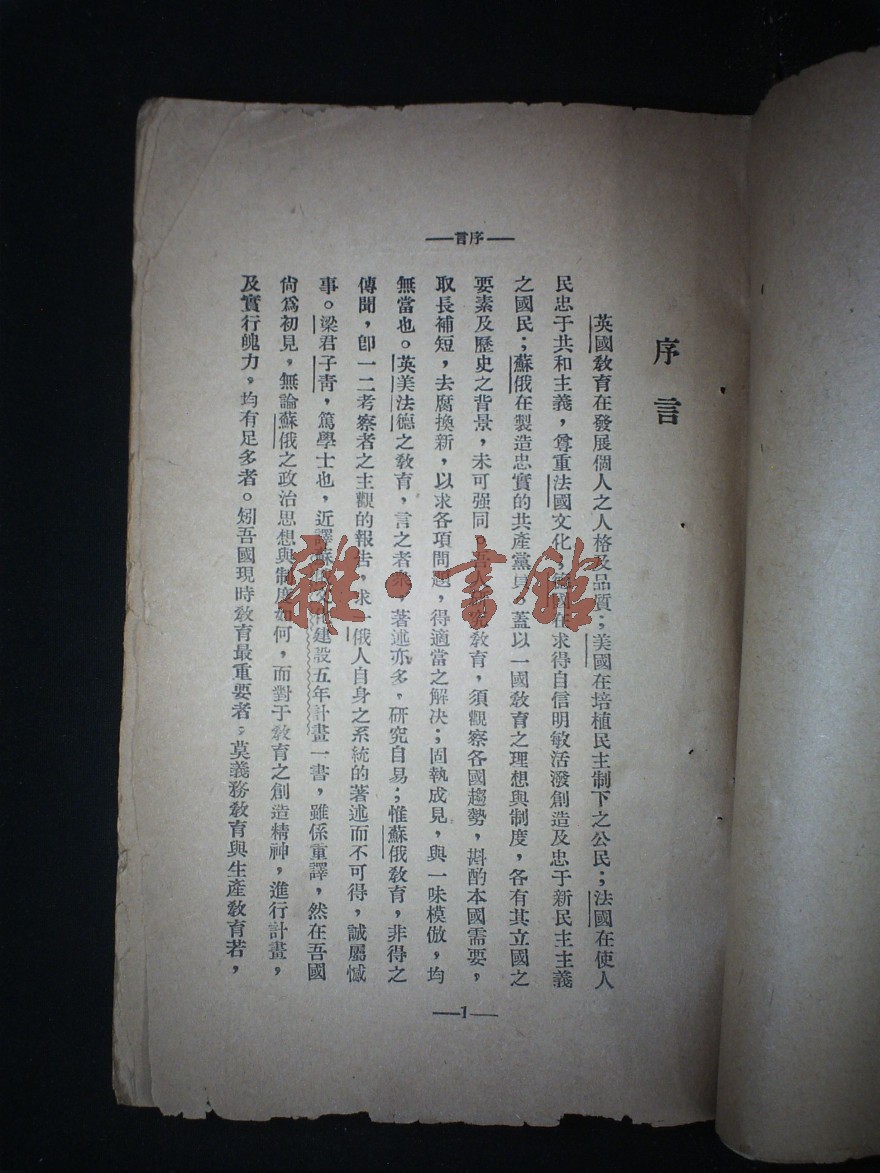 —序言—
序言
英國教育在發展個人之人格及品質；美國在培植民主制下之公民；法國在使人
民忠于共和主義，尊重法國文化；德國在求得自信明敏活潑創造及忠于新民主主義
之國民；蘇俄在製造忠實的共產黨員。蓋以一國教育之理想與制度，各有其立國之
要素及歷史之背景，未可强同。吾人研究教育，須觀察各國趨勢，斟酌本國需要，
取長補短，去腐換新，以求各項問題，得適當之解决；固執成見，與一味模倣，均
無當也。英美法德之教育，言之者衆，著述亦多，研究自易；惟蘇俄教育，非得之
傳聞，卽一二考察者之主觀的報吿，求一俄人自身之系統的著述而不可得，誠屬憾
事。梁君子靑，篤學士也，近譯蘇俄文化建設五年計畫一書，雖係重譯，然在吾國
尙爲初見，無論蘇俄之政治思想與制度如何，而對于教育之創造精神，進行計畫，
及實行魄力，均有足多者。矧吾國現時教育最重要者，莫義務教育與生產教育若，
—1—
雜·書館